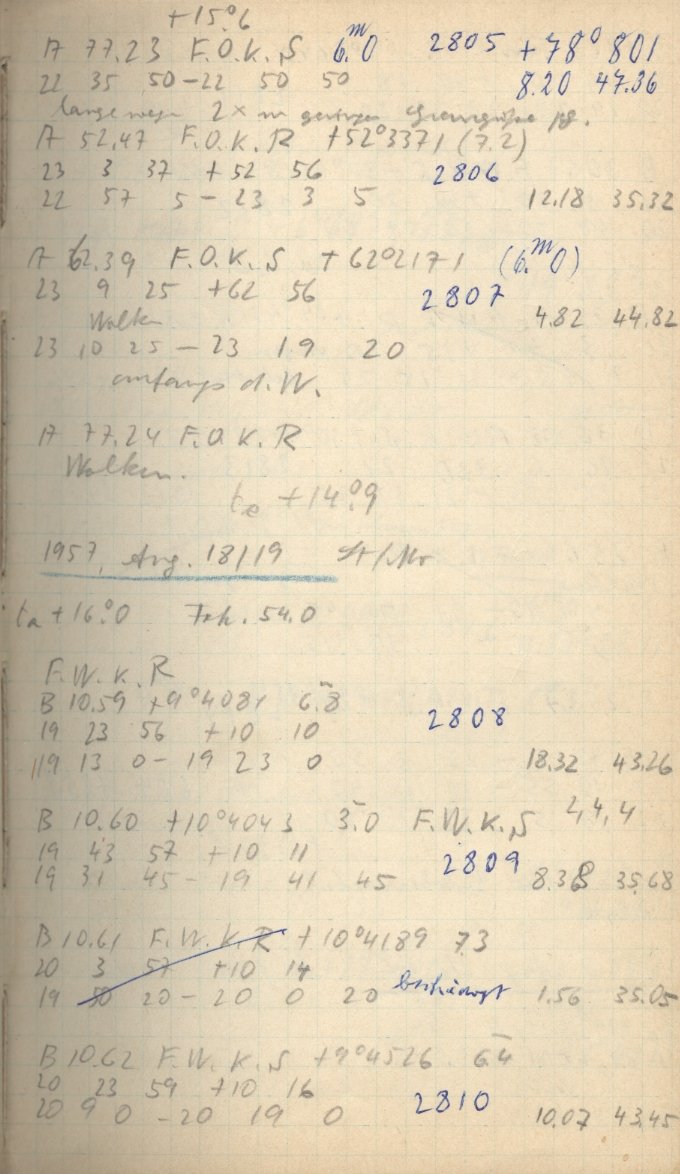 +15°.6
A 77.23 F.O.K.S 6.ᵐ0 2805 +78° 801
22 35 50 - 22 50 50 8.20 47.36
2 × m
A 52.47 F.O.K.R +52°3371 (7.2)
23 3 37 +52 56 2806
22 57 5 - 23 3 5 12.18 35.32
A 62.39 F.O.K.S +62°2171 (6.ᵐ0)
23 9 25 +62 56 2807
Wolken 4.82 44.82
23 10 25 - 23 19 20
anfangs d.W.
A 77.24 F.O.K.R
Wolken.
te +14°.9
1957, Aug. 18/19 St/Mo
ta +16°.0 Feh. 54.0
F.W.K.R
B 10.59 +9°4081 6.8
19 23 56 +10 10 2808
19 13 0 - 19 23 0 18.32 43.26
B 10.60 +10°4043 3.0 F.W.K.S 4,4
19 43 57 +10 11 2809
19 31 45 - 19 41 45 8.38 35.68
B 10.61 F.W.K.R +10°4189 7.3
20 3 57 +10 14
19 50 20 - 20 0 20 beschädigt 1.56 35.05
B 10.62 F.W.K.S +9°4526 6.4
20 23 59 +10 16 2810
20 9 0 - 20 19 0 10.07 43.45